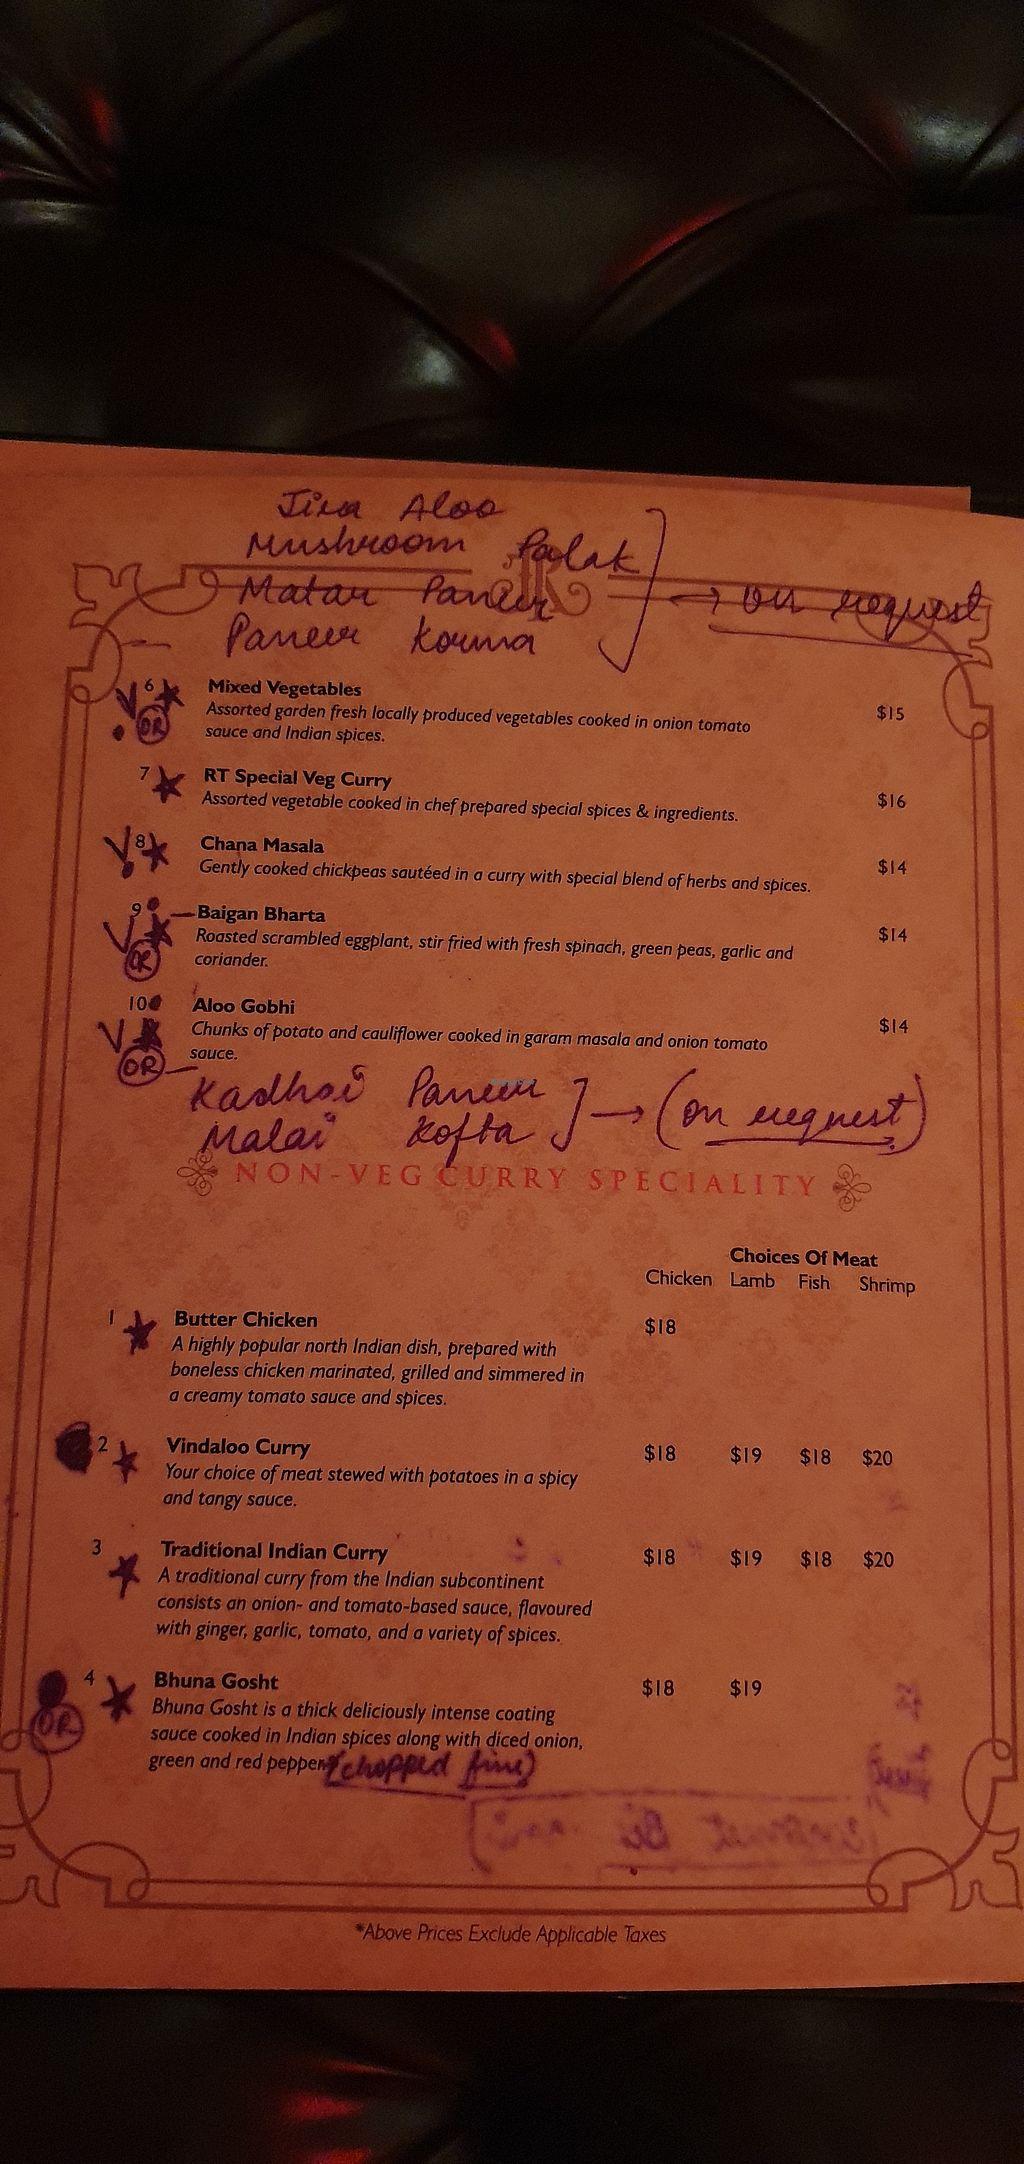 Jira Aloo
Mushroom Palak
Matar Paneer → on request
Paneer Korma
6 Mixed Vegetables
Assorted garden fresh locally produced vegetables cooked in onion tomato $15
OR sauce and Indian spices.
7 RT Special Veg Curry
Assorted vegetable cooked in chef prepared special spices & ingredients. $16
V 8 Chana Masala
Gently cooked chickpeas sautéed in a curry with special blend of herbs and spices. $14
9 Baigan Bharta
V Roasted scrambled eggplant, stir fried with fresh spinach, green peas, garlic and $14
OR coriander.
10 Aloo Gobhi
V Chunks of potato and cauliflower cooked in garam masala and onion tomato $14
OR sauce.
Kadhai Paneer → (on request)
Malai Kofta
NON-VEG CURRY SPECIALITY
Choices Of Meat
Chicken Lamb Fish Shrimp
1 Butter Chicken $18
A highly popular north Indian dish, prepared with
boneless chicken marinated, grilled and simmered in
a creamy tomato sauce and spices.
2 Vindaloo Curry $18 $19 $18 $20
Your choice of meat stewed with potatoes in a spicy
and tangy sauce.
3 Traditional Indian Curry $18 $19 $18 $20
A traditional curry from the Indian subcontinent
consists an onion- and tomato-based sauce, flavoured
with ginger, garlic, tomato, and a variety of spices.
4 Bhuna Gosht $18 $19
Bhuna Gosht is a thick deliciously intense coating
OR sauce cooked in Indian spices along with diced onion,
green and red pepper (chopped fine)
*Above Prices Exclude Applicable Taxes